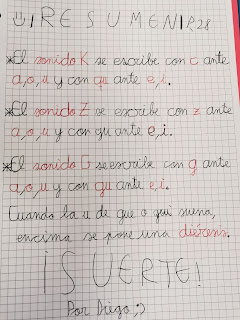 ¡RESUMENIR28
*El sonido K se escribe con c ante
a, o, u y con qu ante e, i.
*El sonido Z se escribe con z ante
a, o, u y con qu ante e, i.
*El sonido G se escribe con g ante
a, o, u y con gu ante e, i.
Cuando la u de gue o gui suena,
encima se pone una diéresis.
¡SUERTE!
Por Diego ;)